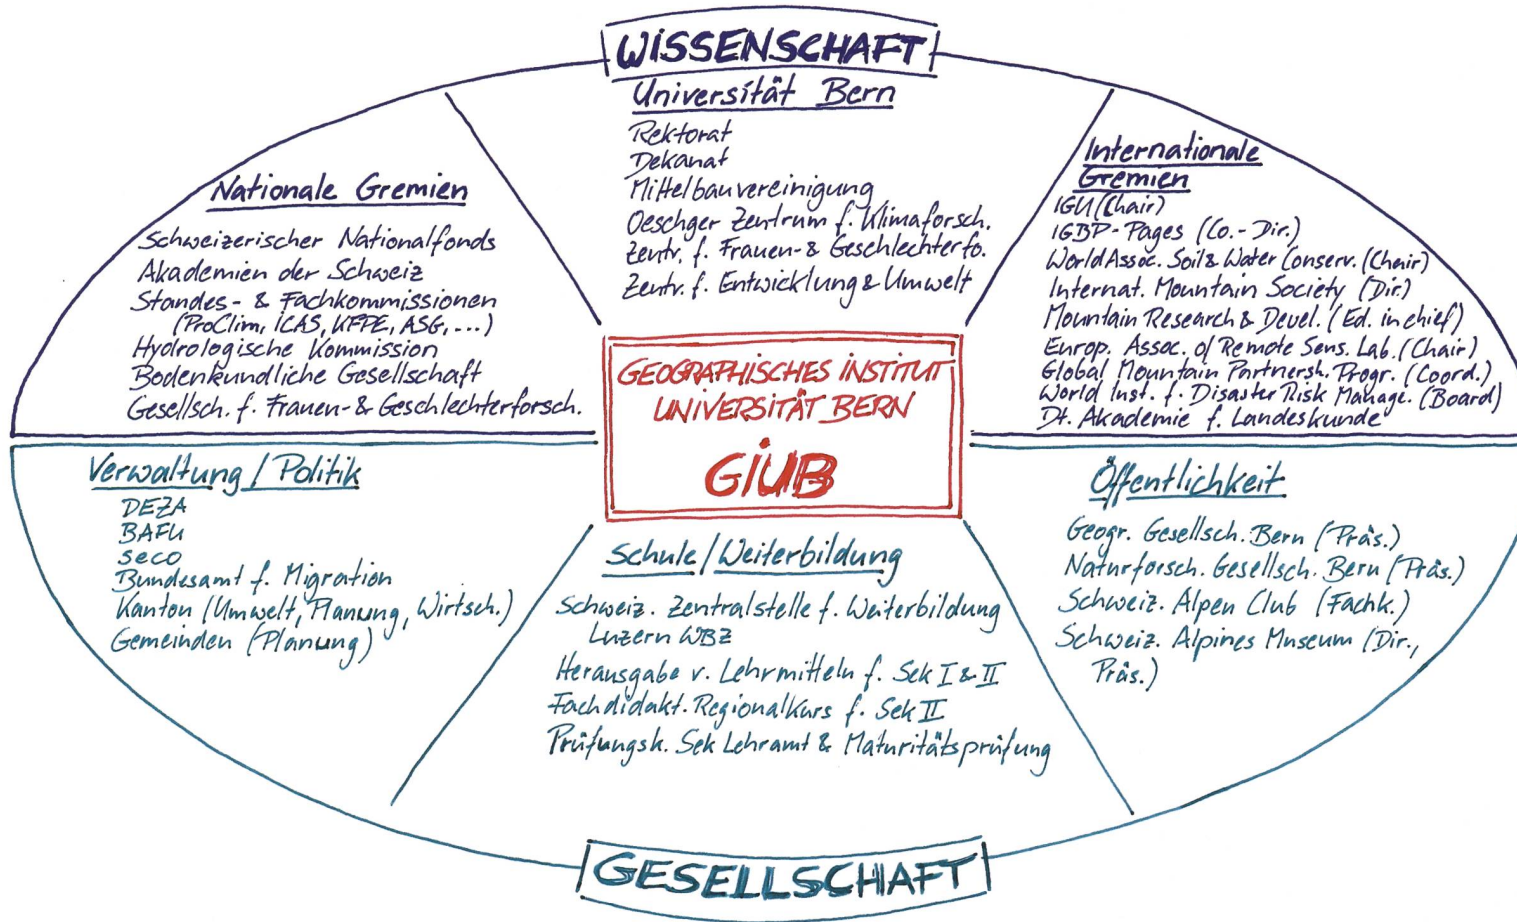 WISSENSCHAFT
Universität Bern
Rektorat
Dekanat
Mittelbauvereinigung
Oeschger Zentrum f. Klimaforsch.
Zentr. f. Frauen- & Geschlechterfo.
Zentr. f. Entwicklung & Umwelt
Nationale Gremien
Schweizerischer Nationalfonds
Akademien der Schweiz
Standes- & Fachkommissionen
(ProClim, ICAS, KFPE, ASG, ...)
Hydrologische Kommission
Bodenkundliche Gesellschaft
Gesellsch. f. Frauen- & Geschlechterforsch.
Internationale
Gremien
IGU (Chair)
IGBP - Pages (Co.- Dir.)
World Assoc. Soil & Water Conserv. (Chair)
Internat. Mountain Society (Dir.)
Mountain Research & Devel. (Ed. in chief)
Europ. Assoc. of Remote Sens. Lab. (Chair)
Global Mountain Partnersh. Progr. (Coord.)
World Inst. f. Disaster Risk Manage. (Board)
Dt. Akademie f. Landeskunde
GEOGRAPHISCHES INSTITUT
UNIVERSITÄT BERN
GIUB
Verwaltung / Politik
DEZA
BAFU
seco
Bundesamt f. Migration
Kanton (Umwelt, Planung, Wirtsch.)
Gemeinden (Planung)
Schule / Weiterbildung
Schweiz. Zentralstelle f. Weiterbildung
Luzern WBZ
Herausgabe v. Lehrmitteln f. Sek I & II
Fachdidakt. Regionalkurs f. Sek II
Prüfungsk. Sek Lehramt & Maturitätsprüfung
Öffentlichkeit
Geogr. Gesellsch. Bern (Präs.)
Naturforsch. Gesellsch. Bern (Präs.)
Schweiz. Alpen Club (Fachk.)
Schweiz. Alpines Museum (Dir.,
Präs.)
GESELLSCHAFT